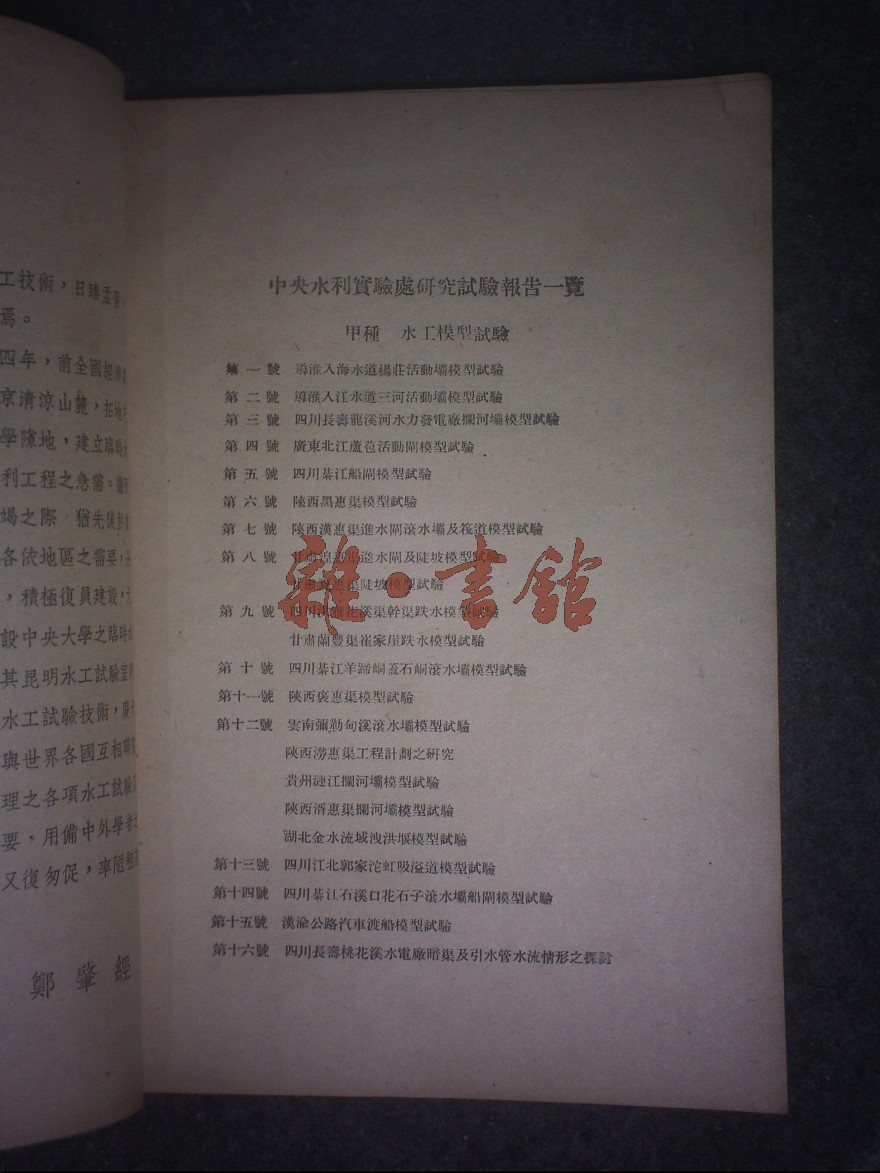 工技術，日臻孟晉
焉。
四年，前全國經濟
京清涼山麓，拓地
學隙地，建立臨時水
利工程之急需。
竭之際 猶先後於
各依地區之需要，分
，積極復員建設，
設中央大學之臨時水
其昆明水工試驗室
水工試驗技術，廣
與世界各國互相聯
理之各項水工試驗
要，用備中外學者
又復匆促，率陋
鄭肇經
中央水利實驗處研究試驗報告一覽
甲種 水工模型試驗
第一號 導淮入海水道楊莊活動壩模型試驗
第二號 導淮入江水道三河活動壩模型試驗
第三號 四川長壽龍溪河水力發電廠攔河壩模型試驗
第四號 廣東北江蘆苞活動閘模型試驗
第五號 四川綦江船閘模型試驗
第六號 陝西黑惠渠模型試驗
第七號 陝西漢惠渠進水閘滾水壩及筏道模型試驗
第八號 甘肅湟惠渠進水閘及陡坡模型試驗
甘肅惠渠陡坡模型試驗
第九號 四川洪雅花溪渠幹渠跌水模型試驗
甘肅蘭豐渠崔家崖跌水模型試驗
第十號 四川綦江羊蹄峒蓋石峒滾水壩模型試驗
第十一號 陝西褒惠渠模型試驗
第十二號 雲南彌勒甸溪滾水壩模型試驗
陝西澇惠渠工程計劃之研究
貴州漣江攔河壩模型試驗
陝西湑惠渠攔河壩模型試驗
湖北金水流域洩洪堰模型試驗
第十三號 四川江北郭家沱虹吸溢道模型試驗
第十四號 四川綦江石溪口花石子滾水壩船閘模型試驗
第十五號 漢渝公路汽車渡船模型試驗
第十六號 四川長壽桃花溪水電廠暗渠及引水管水流情形之探討
雜·書館